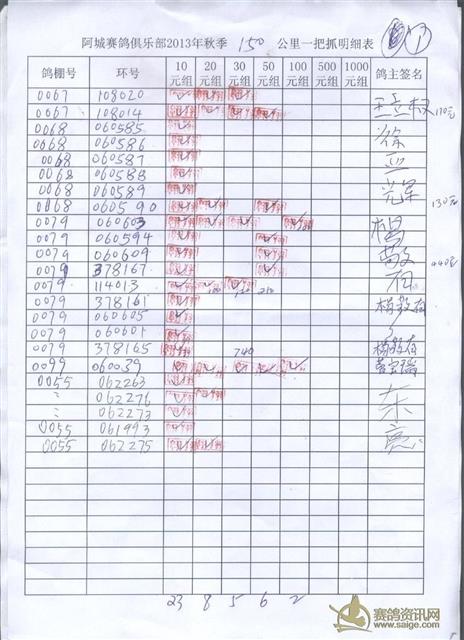 阿城赛鸽俱乐部2013年秋季 150 公里一把抓明细表 1
鸽棚号 环号 10元组 20元组 30元组 50元组 100元组 500元组 1000元组 鸽主签名
0067 108020
0067 108014 170元
0068 060585 徐
0068 060586
0068 060587
0068 060588
0068 060589
0068 060590 130元
0079 060603 杨
0079 060594 敬
0079 060609
0079 378167
0079 114013
0079 378161
0079 060605
0079 060601
0079 378165 740
0099 060039
0055 062263
062276 东
062273
0055 061993 亮
0055 062275
23 8 5 6 2
赛鸽资讯网
www.saige.com